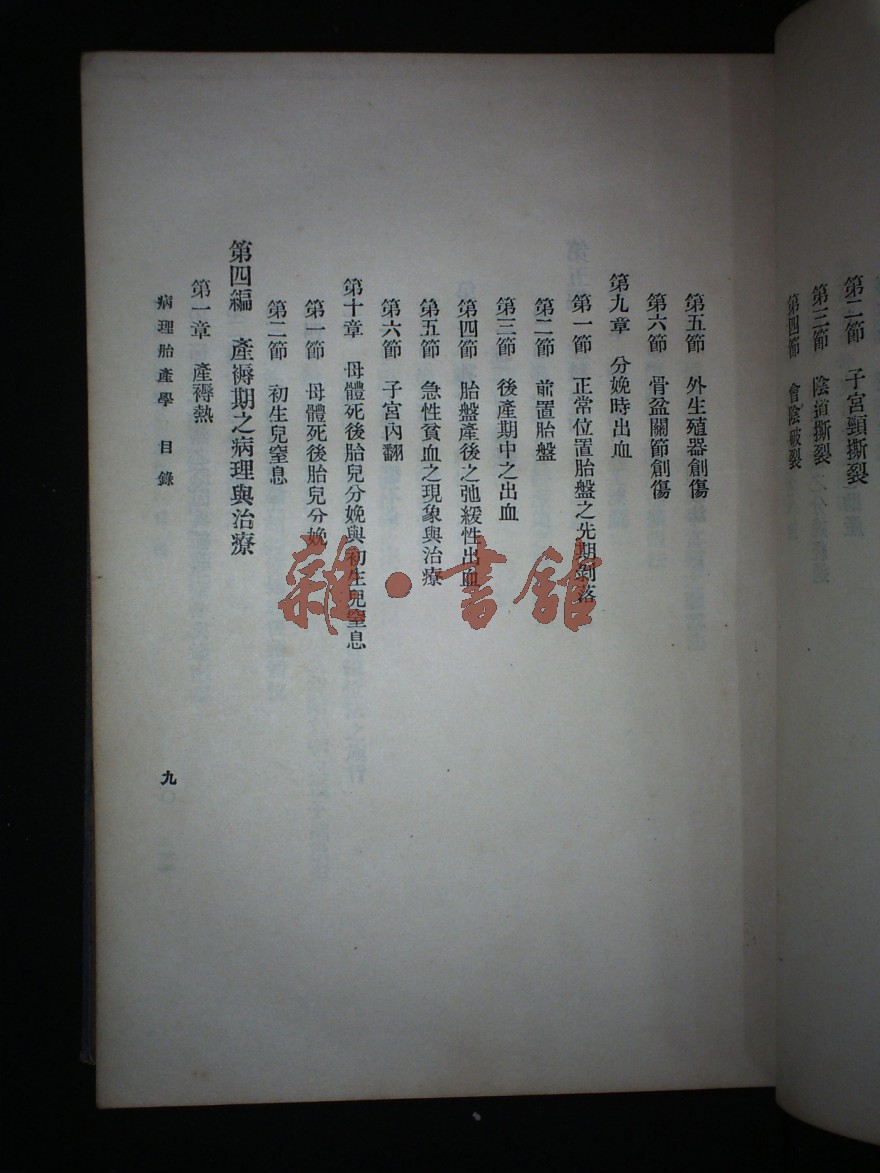 第二節　子宮頸撕裂
第三節　陰道撕裂
第四節　會陰破裂
第五節　外生殖器創傷
第六節　骨盆關節創傷
第九章　分娩時出血
第一節　正常位置胎盤之先期剝落
第二節　前置胎盤
第三節　後產期中之出血
第四節　胎盤產後之弛緩性出血
第五節　急性貧血之現象與治療
第六節　子宮內翻
第十章　母體死後胎兒分娩與初生兒窒息
第一節　母體死後胎兒分娩
第二節　初生兒窒息
第四編　產褥期之病理與治療
第一章　產褥熱
病理胎產學　目錄　九
雜·書館